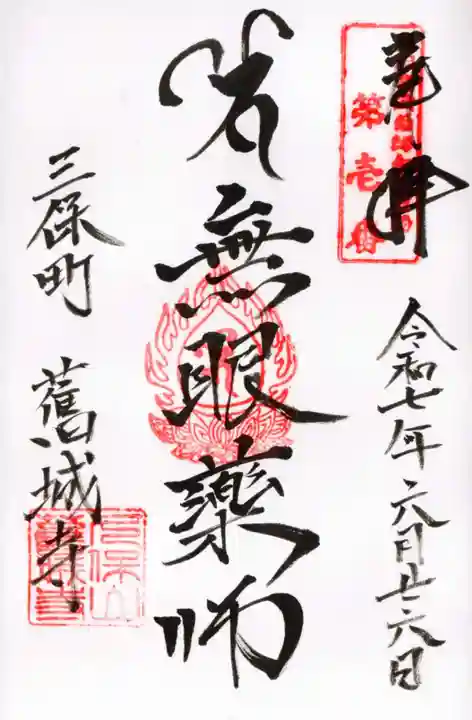 奉拝
第壱番
令和七年六月廿六日
無眼薬師
三保町 舊城寺